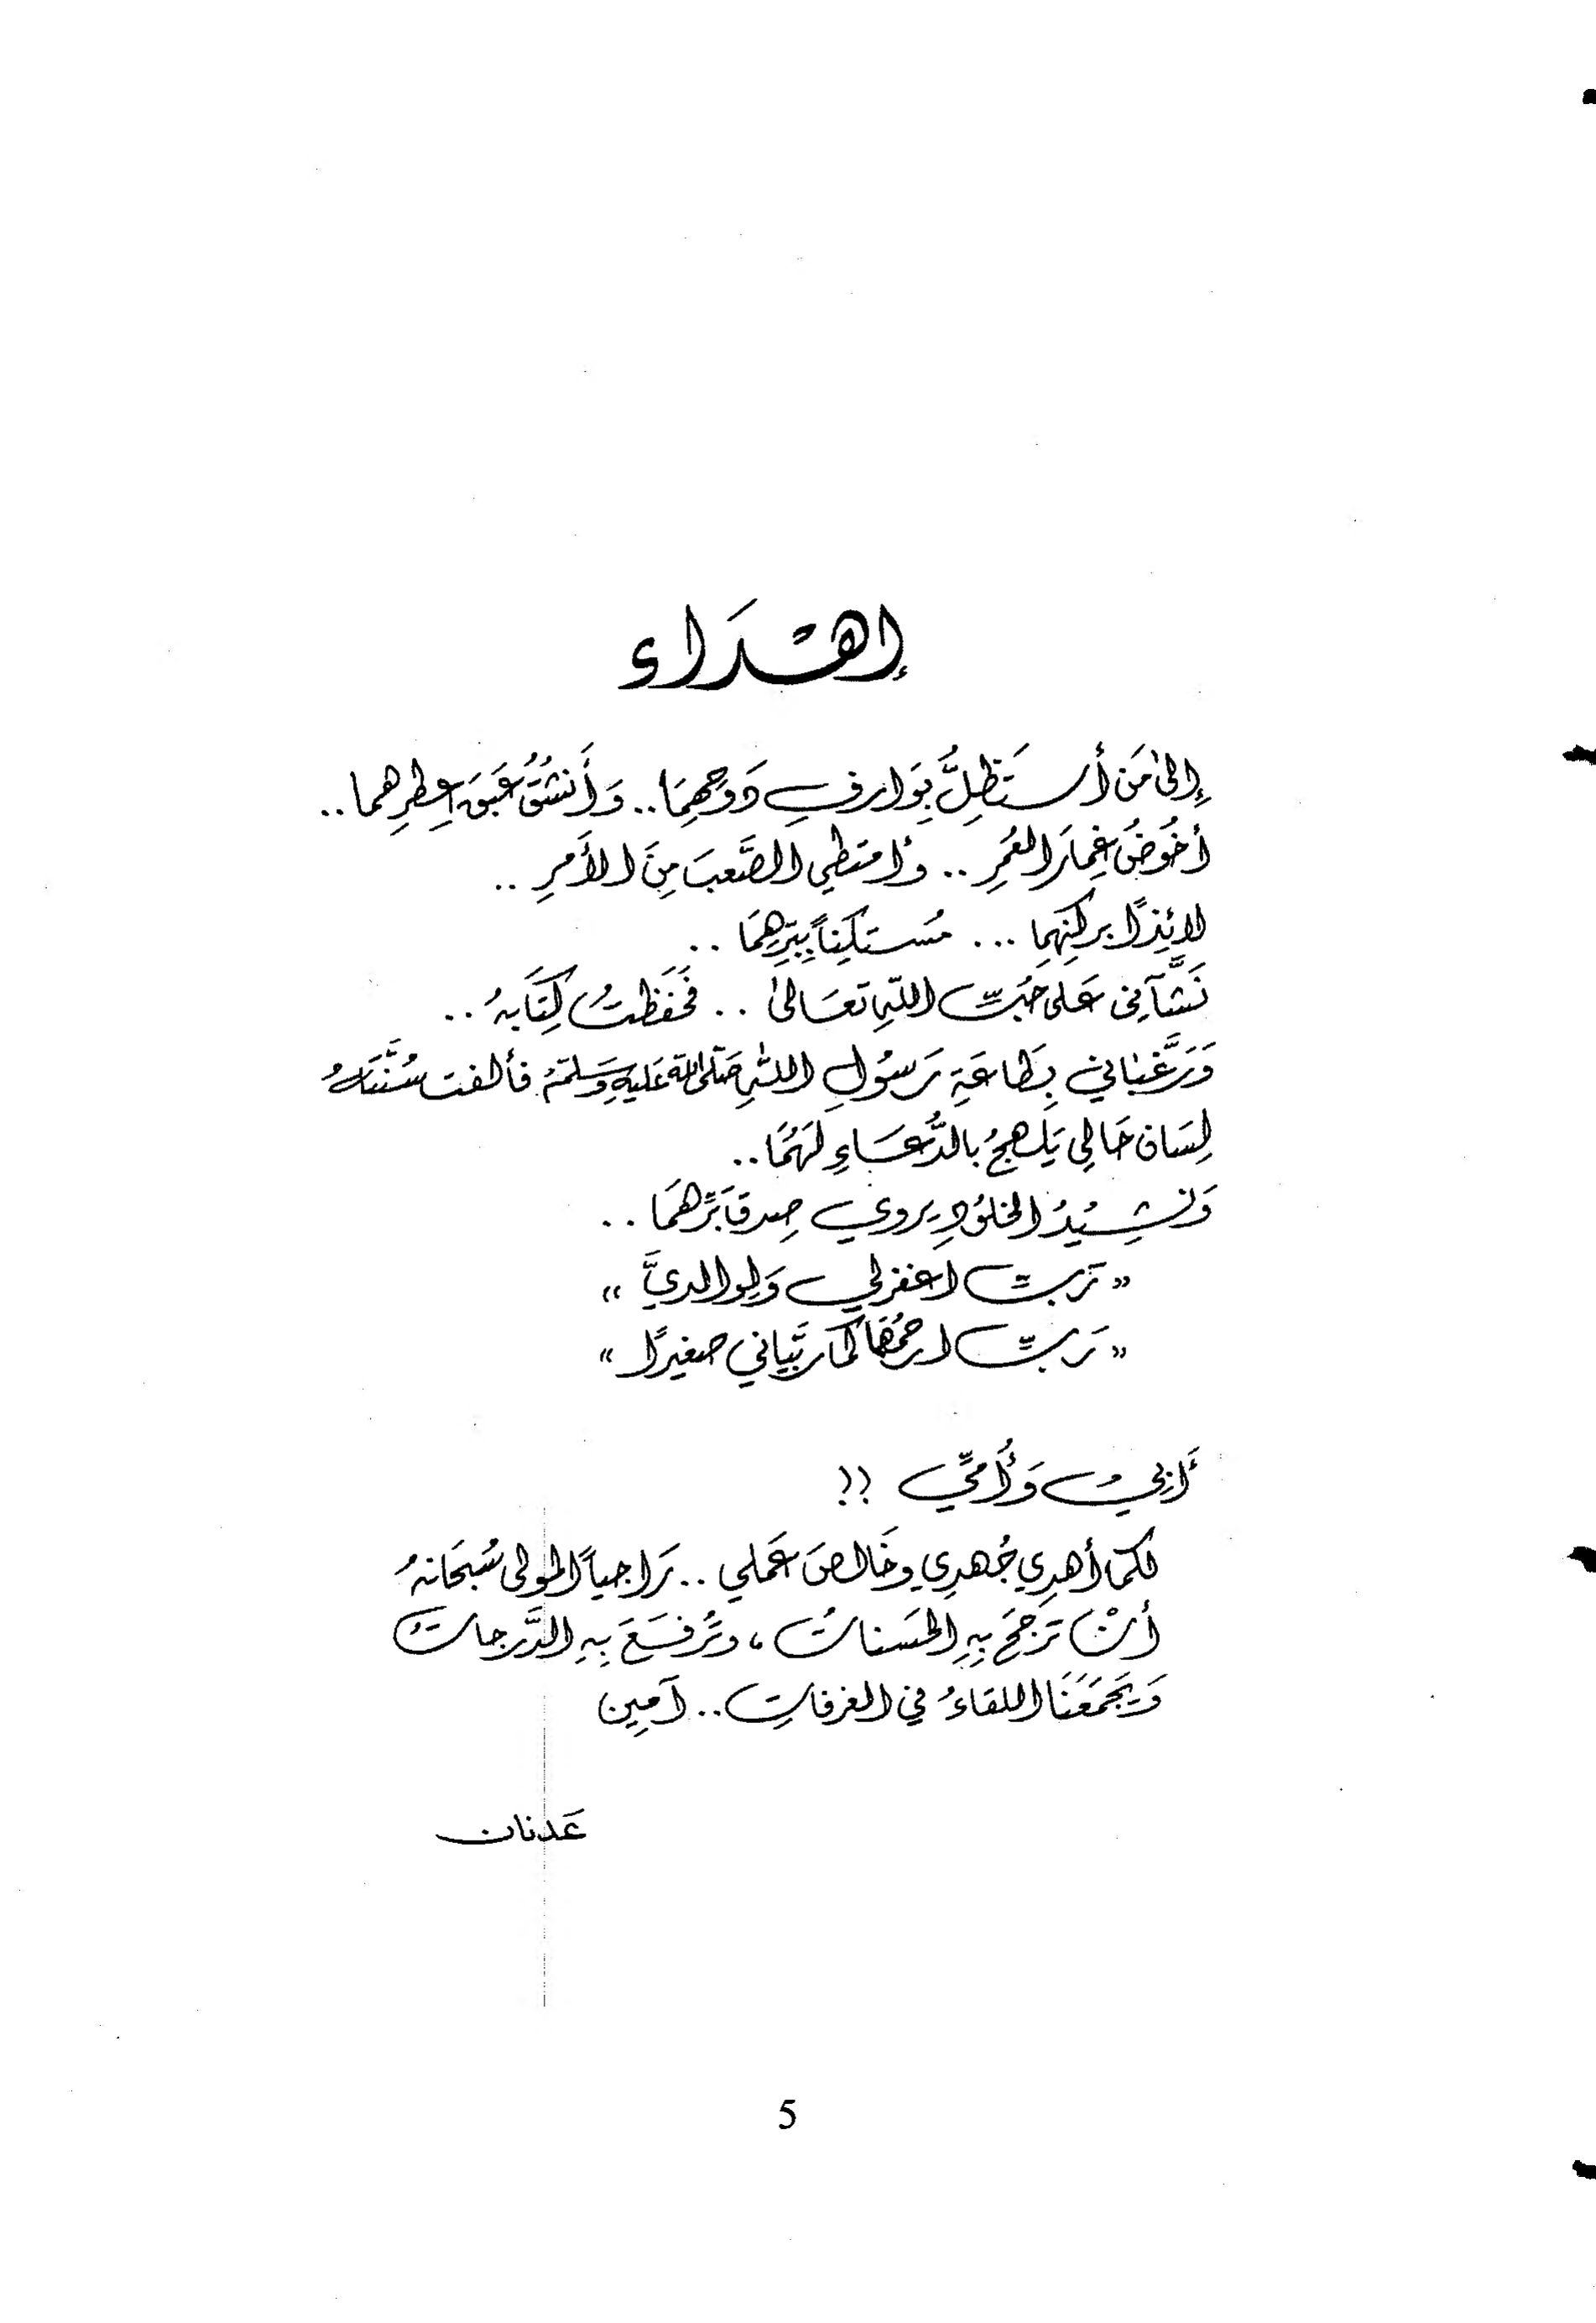 إهْدَاء
إِلىٰ مَن أستَظِلُّ بِوَارفِ دَوحِهِمَا.. وَأَنشُقُ عَبَقَ عِطرِهما..
أخُوضُ غِمارَ العُمرِ .. وأمتطي الصَّعبَ مِنَ الأَمرِ ..
لائِذًا بركنِهِما ... مُستكِناً بِبِرِّهِمَا ..
نَشَّآني عَلى حُبِّ اللهِ تعَالىٰ .. فَحَفَظتُ كِتَابهُ ..
وَرَغَّباني بِطَاعَةِ رَسُولِ اللهِ صَلّى اللهُ عَليهِ وَسَلَّمَ فألفت سُنَّتَهُ
لِسَان حَالِي يَلهجُ بالدُّعَاءِ لَهُمَا..
وَنشِيدُ الخلُودِ يروي صِدقَ بَرِّهمَا ..
« رَبِّ اغفرلي وَلِوالديَّ »
« رَبِّ ارحمْهُمَا كَمَا ربَّيَاني صغيرًا »
أَبِي وَأُمِّي !!
لكما أهدِي جُهدِي وخَالصَ عَملي .. رَاجياً المولى سُبحَانهُ
أنْ تَرجحَ بِهِ الحَسناتُ ، وتُرفَعَ بِهِ الدَّرجاتُ
وَيَجمَعَنَا اللقاءُ في الغرفاتِ .. آمِين
عَدنان
5